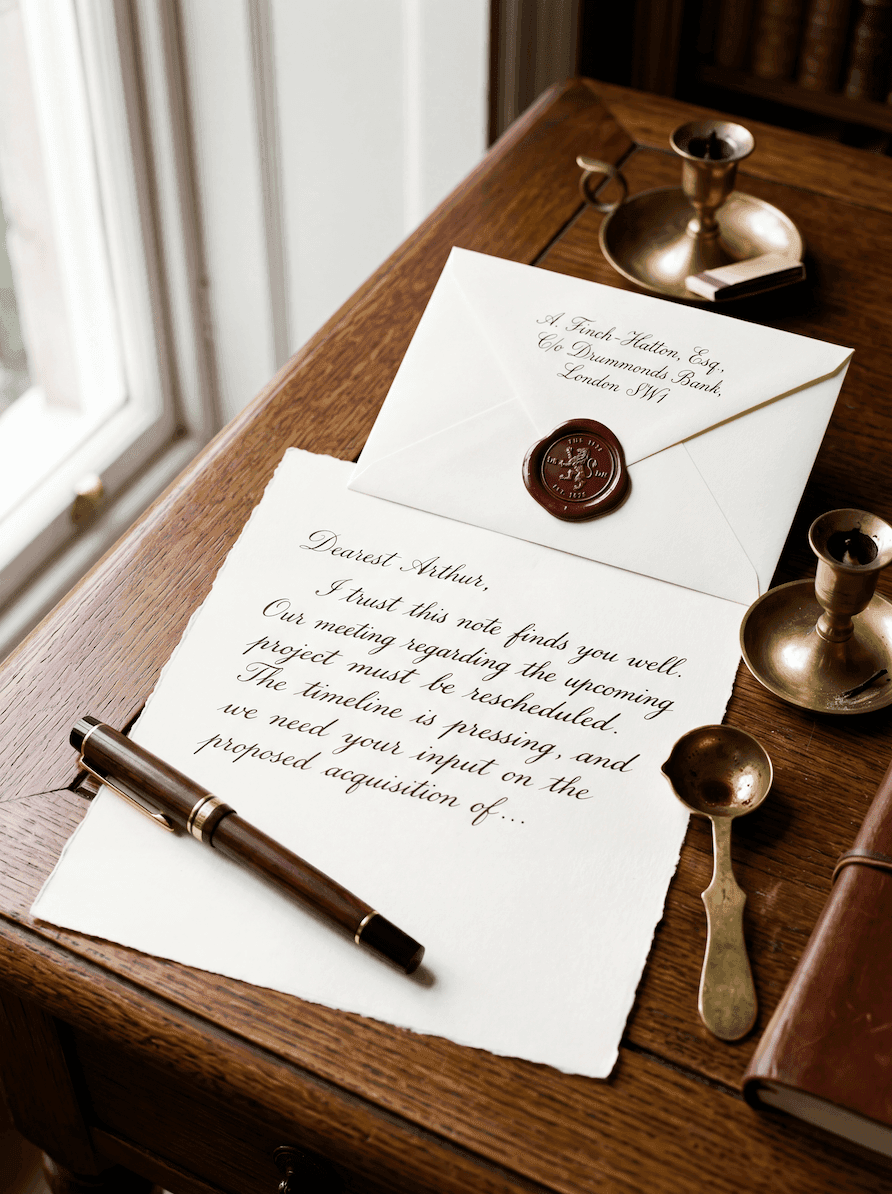 A. Finch-Hatton, Esq.,
C/o Drummonds Bank,
London SW1
Dearest Arthur,
I trust this note finds you well.
Our meeting regarding the upcoming
project must be rescheduled.
The timeline is pressing, and
we need your input on the
proposed acquisition of...